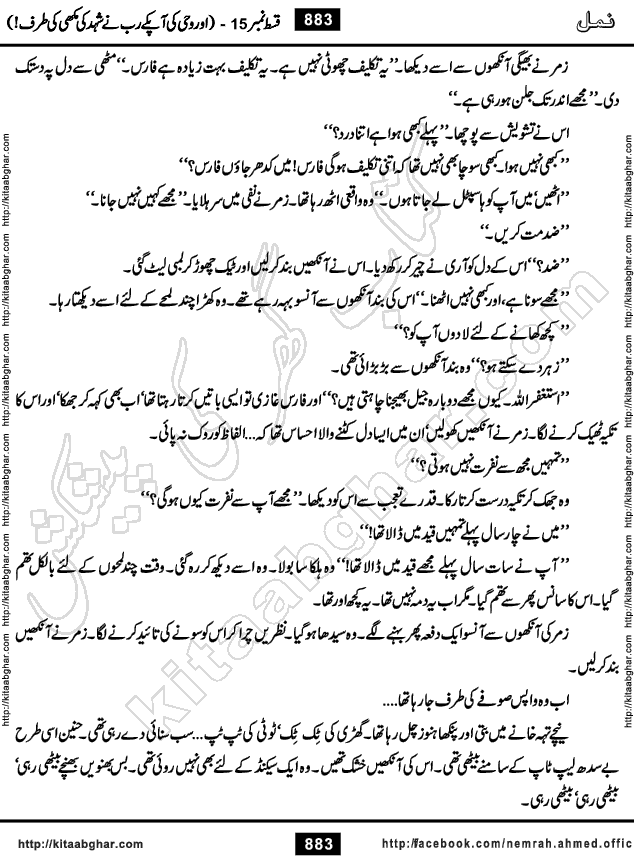 نمل 883 قسط نمبر 15 - (اور وحی کی آپکے رب نے شہد کی مکھی کی طرف!)
زمر نے بھیگی آنکھوں سے اسے دیکھا۔ ”یہ تکلیف چھوٹی نہیں ہے۔ یہ تکلیف بہت زیادہ ہے فارس۔“ مٹھی سے دل پہ دستک
دی۔ ”مجھے اندر تک جلن ہو رہی ہے۔“
اس نے تشویش سے پوچھا۔ ”پہلے کبھی ہوا ہے اتنا درد؟“
”کبھی نہیں ہوا۔ کبھی سوچا بھی نہیں تھا کہ اتنی تکلیف ہوگی فارس! میں کدھر جاؤں فارس؟“
”اٹھیں‘ میں آپ کو ہاسپٹل لے جاتا ہوں۔“ وہ واقعی اٹھ رہا تھا۔ زمر نے نفی میں سر ہلایا۔ ”مجھے کہیں نہیں جانا۔“
”ضد مت کریں۔“
”ضد؟“ اس کے دل کو آری نے چیر کر رکھ دیا۔ اس نے آنکھیں بند کرلیں اور ٹیک چھوڑ کر لمبی لیٹ گئی۔
”مجھے سونا ہے، اور کبھی نہیں اٹھنا۔“ اس کی بند آنکھوں سے آنسو بہہ رہے تھے۔ وہ کھڑا چند لمحے کے لئے اسے دیکھتا رہا۔
”کچھ کھانے کے لئے لا دوں آپ کو؟“
”زہر دے سکتے ہو؟“ وہ بند آنکھوں سے بڑبڑائی تھی۔
”استغفراللہ۔ کیوں مجھے دوبارہ جیل بھیجنا چاہتی ہیں؟“ اور فارس غازی تو ایسی باتیں کرتا رہتا تھا‘ اب بھی کہہ کر جھکا‘ اور اس کا
تکیہ ٹھیک کرنے لگا۔ زمر نے آنکھیں کھولیں‘ ان میں ایسا دل کٹنے والا احساس تھا کہ... الفاظ کو روک نہ پائی۔
”تمہیں مجھ سے نفرت نہیں ہوتی؟“
وہ جھک کر تکیہ درست کرتا رکا۔ قدرے تعجب سے اس کو دیکھا۔ ”مجھے آپ سے نفرت کیوں ہوگی؟“
”میں نے چار سال پہلے تمہیں قید میں ڈالا تھا!“
”آپ نے سات سال پہلے مجھے قید میں ڈالا تھا!“ وہ ہلکا سا بولا۔ وہ اسے دیکھ کر رہ گئی۔ وقت چند لمحوں کے لئے بالکل تھم
گیا۔ اس کا سانس پھر سے تھم گیا۔ مگر اب یہ دمہ نہیں تھا۔ یہ کچھ اور تھا۔
زمر کی آنکھوں سے آنسو ایک دفعہ پھر بہنے لگے۔ وہ سیدھا ہو گیا۔ نظریں چرا کر اس کو سونے کی تائید کرنے لگا۔ زمر نے آنکھیں
بند کرلیں۔
اب وہ واپس صوفے کی طرف جا رہا تھا....
نیچے تہہ خانے میں بتی اور پنکھا ہنوز چل رہا تھا۔ گھڑی کی ٹِک ٹِک‘ ٹوٹی کی ٹپ ٹپ... سب سنائی دے رہی تھی۔ حنین اسی طرح
بے سدھ لیپ ٹاپ کے سامنے بیٹھی تھی۔ اس کی آنکھیں خشک تھیں۔ وہ ایک سیکنڈ کے لئے بھی نہیں روئی تھی۔ بس بھنویں بھینچے بیٹھی رہی‘
بیٹھی رہی‘ بیٹھی رہی۔
http://kitaabghar.com 883 http://facebook.com/nemrah.ahmed.offic
http://kitaabghar.com http://kitaabghar.com http://kitaabghar.com http://kitaabghar.com http://kitaabghar.com http://kitaabghar.com
http://kitaabghar.com http://kitaabghar.com http://kitaabghar.com http://kitaabghar.com http://kitaabghar.com http://kitaabghar.com
کتاب گھر کی پیشکش
kitaabghar.com